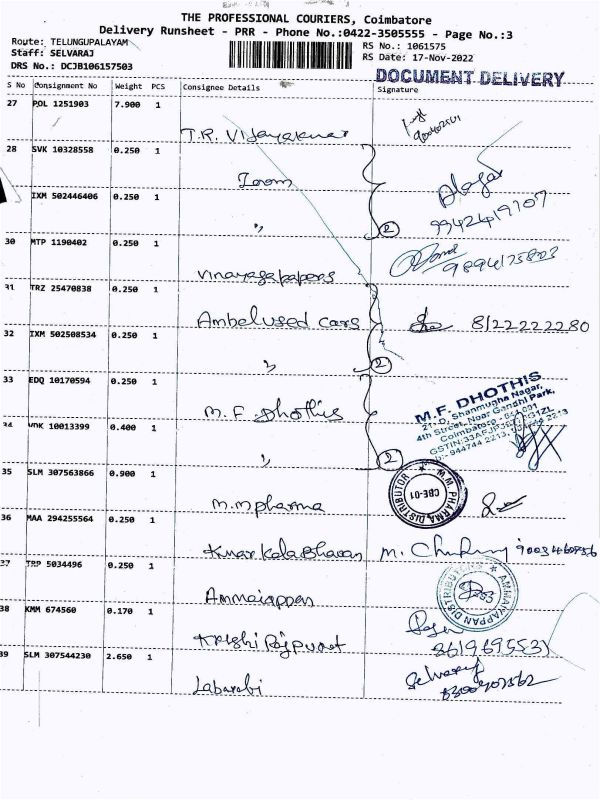 THE PROFESSIONAL COURIERS, Coimbatore
Delivery Runsheet - PRR - Phone No.:0422-3505555 - Page No.:3
Route: TELUNGUPALAYAM
Staff: SELVARAJ
DRS No.: DCJB106157503
RS No.: 1061575
RS Date: 17-Nov-2022
DOCUMENT DELIVERY
S No Consignment No Weight PCS Consignee Details Signature
27 POL 1251903 7.900 1
T.R. Vijayakumar
28 SVK 10328558 0.250 1
Zoom
IXM 502446406 0.250 1
„ 2 9942419707
30 MTP 1190402 0.250 1
Vinayagapapers
31 TRZ 25470838 0.250 1
Ambel used cars 8122222280
32 IXM 502508534 0.250 1
„ 2
33 EDQ 10170594 0.250 1
M.F. Dhothis
M.F. DHOTHIS
21-D, Shanmugha Nagar,
4th Street, Near Gandhi Park,
Coimbatore - 641 001
34 0.400 1
„ 2
35 SLM 307563866 0.900 1
M.M pharma
M.M. PHARMA DISTRIBUTOR
CBE-01
36 MAA 294255564 0.250 1
37 TRP 5034496 0.250 1
Ammaiappan
AMMAIYAPPAN DISTRIBUTORS
38 KMM 674560 0.170 1
8619695531
39 SLM 307544230 2.650 1
Selvaraj